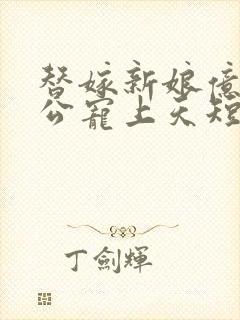 替嫁新娘億
公寵上天短
丁劍輝